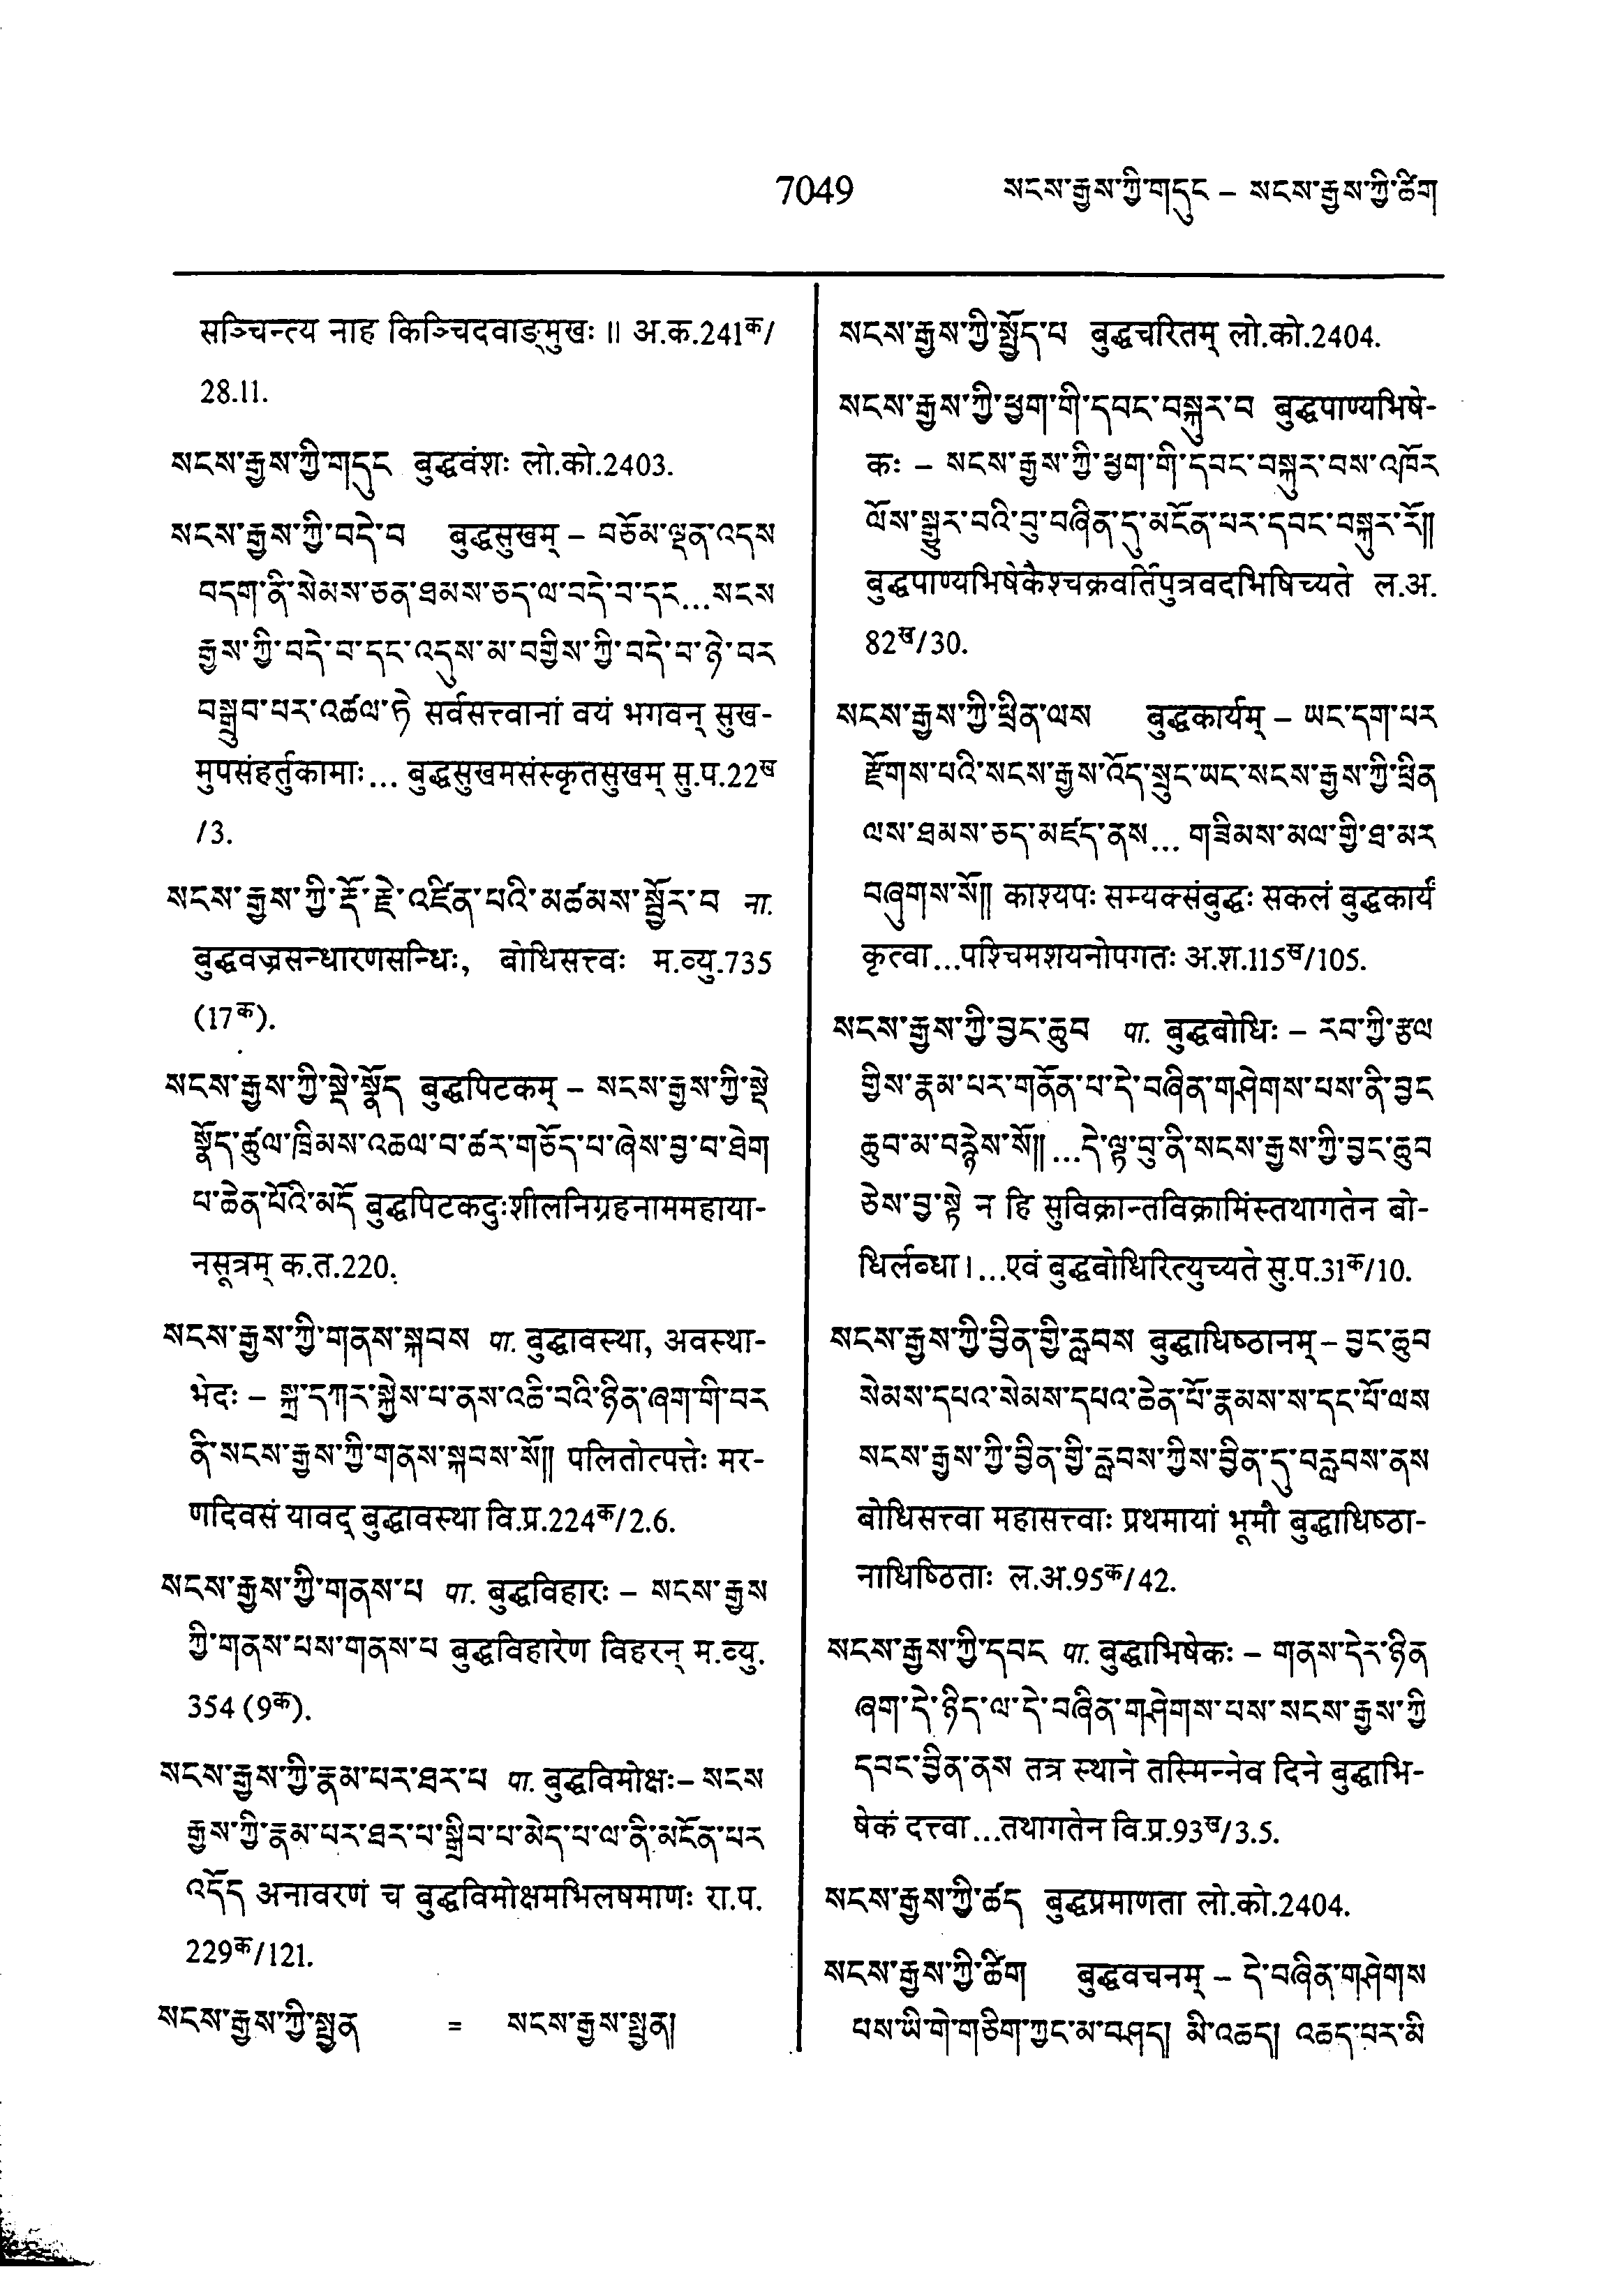 7049
སངས་རྒྱས་ཀྱི་གདུང – སངས་རྒྱས་ཀྱི་ཚིག
सञ्चिन्त्य नाह किञ्चिदवाङ्मुखः ॥ अ.क.241क/
28.11.
སངས་རྒྱས་ཀྱི་གདུང बुद्धवंशः लो.को.2403.
སངས་རྒྱས་ཀྱི་བདེ་བ बुद्धसुखम् – བཅོམ་ལྡན་འདས
བདག་ནི་སེམས་ཅན་ཐམས་ཅད་ལ་བདེ་བ་དང...སངས
རྒྱས་ཀྱི་བདེ་བ་དང་འདུས་མ་བགྱིས་ཀྱི་བདེ་བ་ཉེ་བར
བསྒྲུབ་པར་འཚལ་ཏེ सर्वसत्त्वानां वयं भगवन् सुख-
मुपसंहर्तुकामाः... बुद्धसुखमसंस्कृतसुखम् सु.प.22ख
/3.
སངས་རྒྱས་ཀྱི་རྡོ་རྗེ་འཛིན་པའི་མཚམས་སྦྱོར་བ ना.
बुद्धवज्रसन्धारणसन्धिः, बोधिसत्त्वः म.व्यु.735
(17क).
སངས་རྒྱས་ཀྱི་སྡེ་སྣོད बुद्धपिटकम् – སངས་རྒྱས་ཀྱི་སྡེ
སྣོད་ཚུལ་ཁྲིམས་འཆལ་བ་ཚར་གཅོད་པ་ཞེས་བྱ་བ་ཐེག
པ་ཆེན་པོའི་མདོ बुद्धपिटकदुःशीलनिग्रहनाममहाया-
नसूत्रम् क.त.220.
སངས་རྒྱས་ཀྱི་གནས་སྐབས पा. बुद्धावस्था, अवस्था-
भेदः – སྐྲ་དཀར་སྐྱེས་པ་ནས་འཆི་བའི་ཉིན་ཞག་གི་བར
ནི་སངས་རྒྱས་ཀྱི་གནས་སྐབས་སོ།། पलितोत्पत्तेः मर-
णदिवसं यावद् बुद्धावस्था वि.प्र.224क/2.6.
སངས་རྒྱས་ཀྱི་གནས་པ पा. बुद्धविहारः – སངས་རྒྱས
ཀྱི་གནས་པས་གནས་པ बुद्धविहारेण विहरन् म.व्यु.
354 (9क).
སངས་རྒྱས་ཀྱི་རྣམ་པར་ཐར་པ पा. बुद्धविमोक्षः– སངས
རྒྱས་ཀྱི་རྣམ་པར་ཐར་པ་སྒྲིབ་པ་མེད་པ་ལ་ནི་མངོན་པར
འདོད अनावरणं च बुद्धविमोक्षमभिलषमाणः रा.प.
229क/121.
སངས་རྒྱས་ཀྱི་སྤྱན = སངས་རྒྱས་སྤྱན།
སངས་རྒྱས་ཀྱི་སྤྱོད་པ बुद्धचरितम् लो.को.2404.
སངས་རྒྱས་ཀྱི་ཕྱག་གི་དབང་བསྐུར་བ बुद्धपाण्यभिषे-
कः – སངས་རྒྱས་ཀྱི་ཕྱག་གི་དབང་བསྐུར་བས་འཁོར
ལོས་སྒྱུར་བའི་བུ་བཞིན་དུ་མངོན་པར་དབང་བསྐུར་རོ།།
बुद्धपाण्यभिषेकैश्चक्रवर्तिपुत्रवदभिषिच्यते ल.अ.
82ख/30.
སངས་རྒྱས་ཀྱི་ཕྲིན་ལས बुद्धकार्यम् – ཡང་དག་པར
རྫོགས་པའི་སངས་རྒྱས་འོད་སྲུང་ཡང་སངས་རྒྱས་ཀྱི་ཕྲིན
ལས་ཐམས་ཅད་མཛད་ནས... གཟིམས་མལ་གྱི་ཐ་མར
བཞུགས་སོ།། काश्यपः सम्यक्संबुद्धः सकलं बुद्धकार्यं
कृत्वा...पश्चिमशयनोपगतः अ.श.115ख/105.
སངས་རྒྱས་ཀྱི་བྱང་ཆུབ पा. बुद्धबोधिः – རབ་ཀྱི་རྩལ
གྱིས་རྣམ་པར་གནོན་པ་དེ་བཞིན་གཤེགས་པས་ནི་བྱང
ཆུབ་མ་བརྙེས་སོ།། ...དེ་ལྟ་བུ་ནི་སངས་རྒྱས་ཀྱི་བྱང་ཆུབ
ཅེས་བྱ་སྟེ न हि सुविक्रान्तविक्रामिंस्तथागतेन बो-
धिर्लब्धा ।...एवं बुद्धबोधिरित्युच्यते सु.प.31क/10.
སངས་རྒྱས་ཀྱི་བྱིན་གྱི་རླབས बुद्धाधिष्ठानम् – བྱང་ཆུབ
སེམས་དཔའ་སེམས་དཔའ་ཆེན་པོ་རྣམས་ས་དང་པོ་ལས
སངས་རྒྱས་ཀྱི་བྱིན་གྱི་རླབས་ཀྱིས་བྱིན་དུ་བརླབས་ནས
बोधिसत्त्वा महासत्त्वाः प्रथमायां भूमौ बुद्धाधिष्ठा-
नाधिष्ठिताः ल.अ.95क/42.
སངས་རྒྱས་ཀྱི་དབང पा. बुद्धाभिषेकः – གནས་དེར་ཉིན
ཞག་དེ་ཉིད་ལ་དེ་བཞིན་གཤེགས་པས་སངས་རྒྱས་ཀྱི
དབང་བྱིན་ནས तत्र स्थाने तस्मिन्नेव दिने बुद्धाभि-
षेकं दत्त्वा...तथागतेन वि.प्र.93ख/3.5.
སངས་རྒྱས་ཀྱི་ཚད बुद्धप्रमाणता लो.को.2404.
སངས་རྒྱས་ཀྱི་ཚིག बुद्धवचनम् – དེ་བཞིན་གཤེགས
པས་ཡི་གེ་གཅིག་ཀྱང་མ་བཤད། མི་འཆད། འཆད་པར་མི